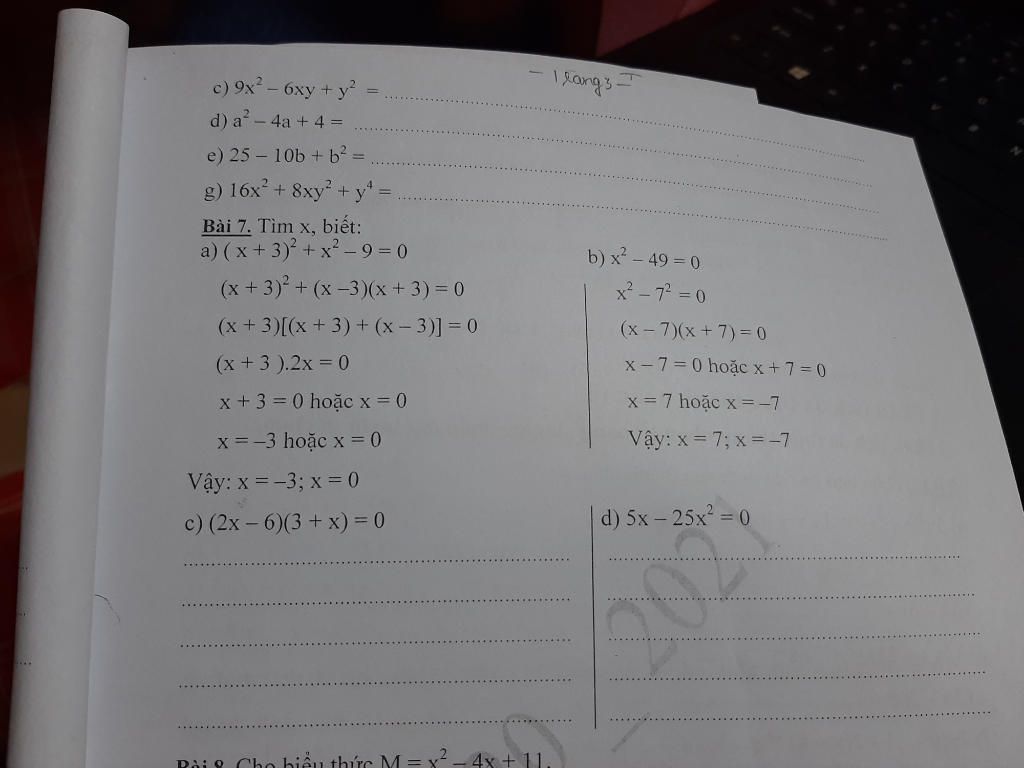 c) 9x² – 6xy + y² = ........................................
d) a² – 4a + 4 = ........................................
e) 25 – 10b + b² = ........................................
g) 16x² + 8xy² + y⁴ = ........................................
Bài 7. Tìm x, biết:
a) ( x + 3)² + x² – 9 = 0
(x + 3)² + (x –3)(x + 3) = 0
(x + 3)[(x + 3) + (x – 3)] = 0
(x + 3 ).2x = 0
x + 3 = 0 hoặc x = 0
x = –3 hoặc x = 0
Vậy: x = –3; x = 0
b) x² – 49 = 0
x² – 7² = 0
(x – 7)(x + 7) = 0
x – 7 = 0 hoặc x + 7 = 0
x = 7 hoặc x = –7
Vậy: x = 7; x = –7
c) (2x – 6)(3 + x) = 0
d) 5x – 25x² = 0
– 2021
Bài 8. Cho biểu thức M = x² – 4x + 11.